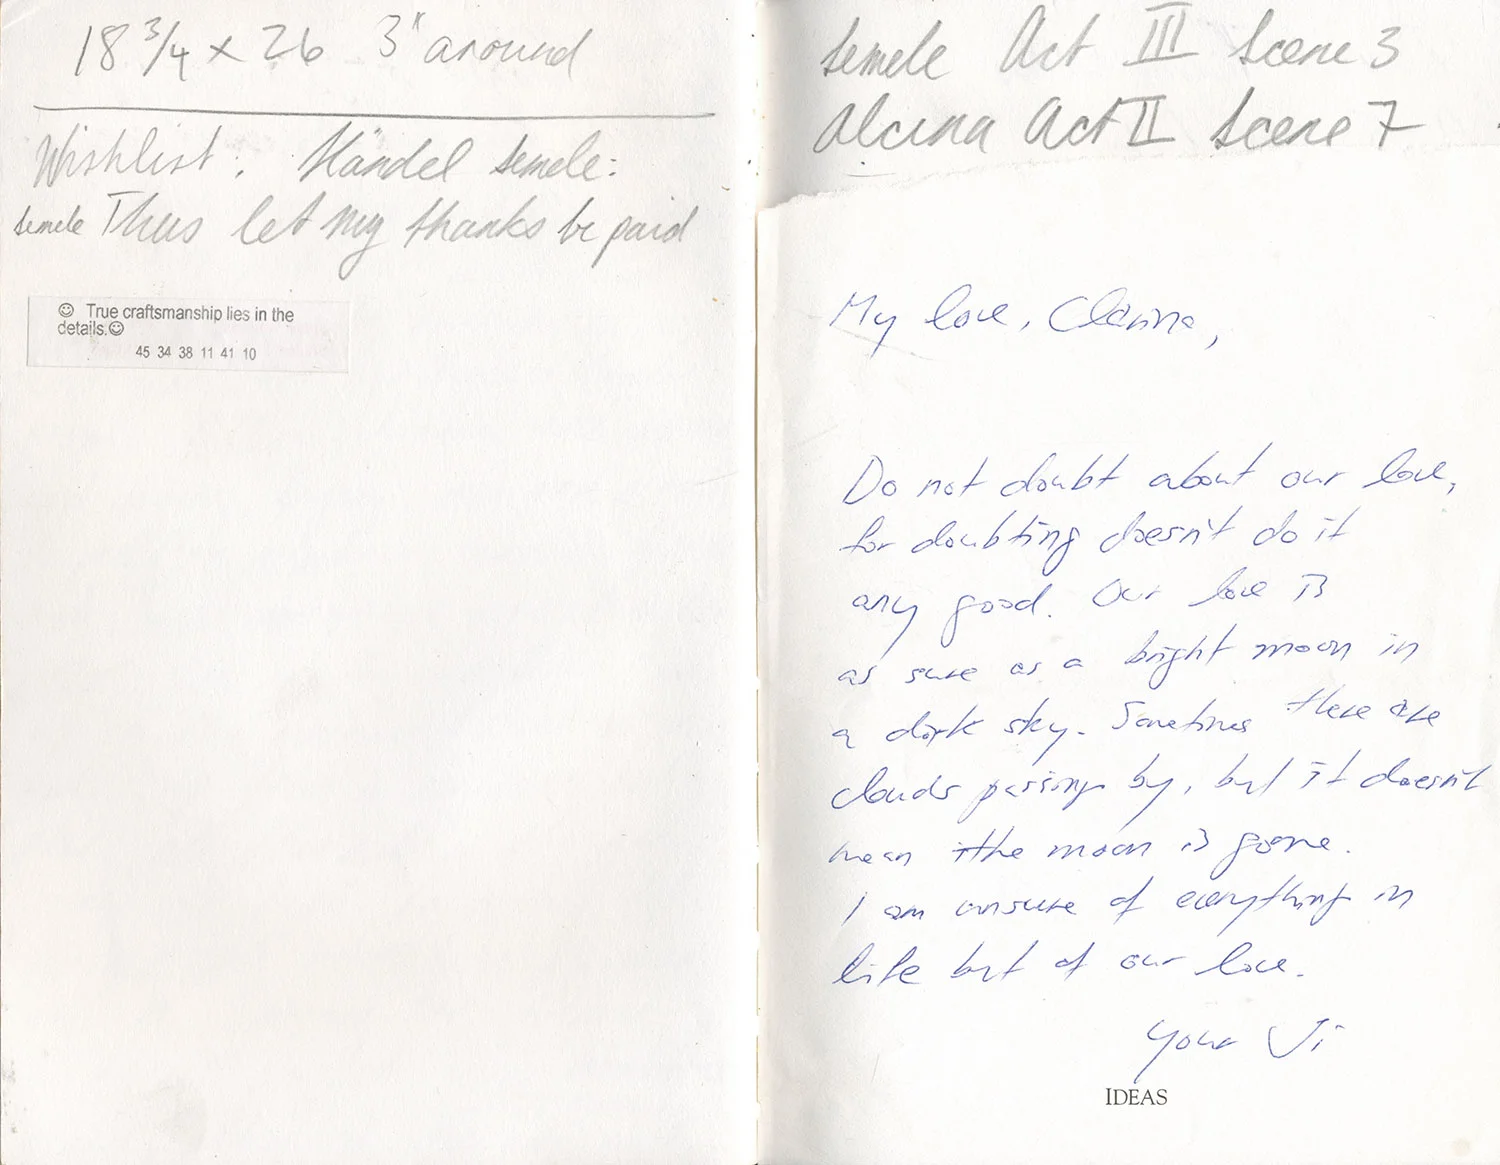 18 3/4 x 26 3" around
Wishlist: Händel Semele:
Semele Thus let my thanks be paid
☺ True craftsmanship lies in the
details.☺
45 34 38 11 41 10
Semele Act III Scene 3
Alcina Act II Scene 7
My love,
Do not doubt about our love,
for doubting doesn't do it
any good. Our love is
as sure as a bright moon in
a dark sky. Sometimes there are
clouds passing by, but it doesn't
mean the moon is gone.
I am unsure of everything in
life but of our love.
Your
IDEAS